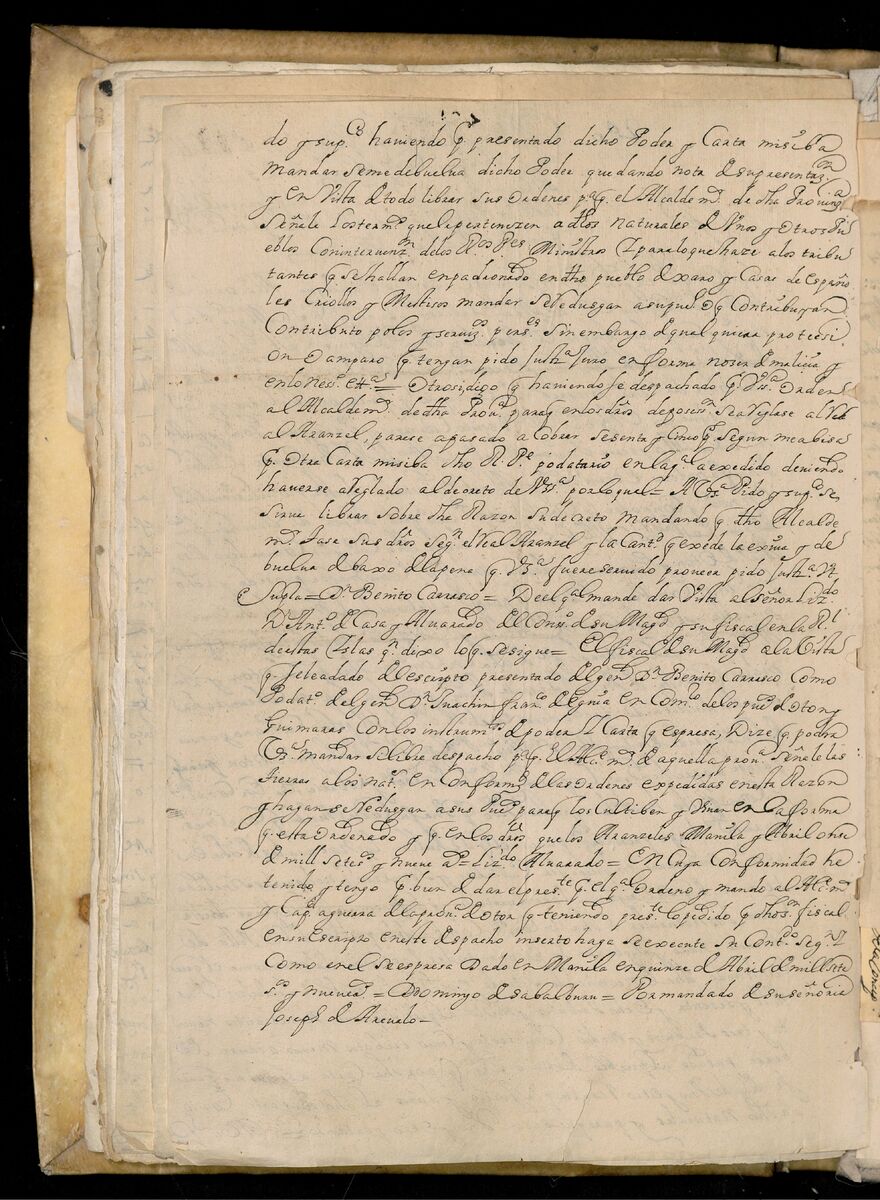 do y sup.co haviendo p. presentado dicho Poder y Carta misiba
mandar se me debuelva dicho Poder quedando nota de su presentaz.on
y en Vista de todo librar sus ordenes pa. q. el Alcalde mr. de dha Provinça
señale los term.s que le pertenezen a dhos naturales de Unos y otros Pu
eblos Con intervenz.n de los Rdos Pes. Ministros Y para lo que haze a los tribu
tantes q se hallan enpadronado en dho pueblo de xaro y Casas de españo
les Criollos y Mestisos mandar se Redusgan a su puebo. y q Contribuyan
Con tributo polos y serviz.os pers.es sin embargo de qual quiera protecsi
on o amparo q. tengan pido Justiza. Juro en forma no ser de malicia y
en lo nes.o etta. = Otrosi digo q haviendose despachado p. Vssa. orden
al Alcalde mr. de dha Prov.a para q en los dros de posess.on se a Reglase al Rea
al Aranzel, parese a pasado a Cobrar sesenta y Cinco ps. segun me abisa
p. Otra Carta misiba dho R. Pe. podatario en la q. a exedido deviendo
haverse a Reglado al decreto de Vssa. por lo qual = A Vssa. Pido y sup.co se
sirva librar sobre dha Razon su decreto mandando q. dho Alcalde
mr. Tase sus dros seg.n el Real Aranzel y la Cant.d q exede la exiva y de
buelva de baxo de la pena q. Vssa. fuere servido proveer pido Justiza. Vt
Supra = Dn. Benito Carrasco = De el q.al mande dar Vista al señor Lizdo
Dn Anto. de Casa y Alvarado del Conss.o de su Magd y su fiscal en la Rl
de estas Yslas q.n dixo lo q. se sigue = El fiscal de su Magd a la Vista
q. se le a dado del escripto presentado del genl. Dn. Benito Carrasco Como
Podat.o del genl Dn. Juachin fran.co de en Com.on de los pueos de oton y
Guimaras Con los instrum.tos de poder Y Carta q espresa, Dize q. podra
Vssa. mandar se libre despacho pa. q. el Alce. mr. de aquella prov.a señale las
tierras a los nat.s en Conformd de las ordenes expedidas en esta Razon
y hagan se Redusgan a sus Pueos para q los Cultiben y Usar en la forma
q. esta ordenado y q. en los dros que los Aranzeles Manila y Abril onze
de mill setes y nueve a.s = Lizdo Alvarado = En Cuya Conformidad he
tenido y tengo p. bien de dar el pres.te p. el q.al ordeno y mando al Alce. mr.
y Capn a guerra de la prov.a de oton q. teniendo pres.te lo pedido p dho sr. fiscal
en su Escripto en este despacho inserto haga se execute su Cont.do seg.n Y
Como en el se espresa Dado en Manila en quinze de Abril de mill sete
s.os y nueve a.s = D Domingo de sabalburu = Por mandado de su señoria
Joseph de Arevalo –